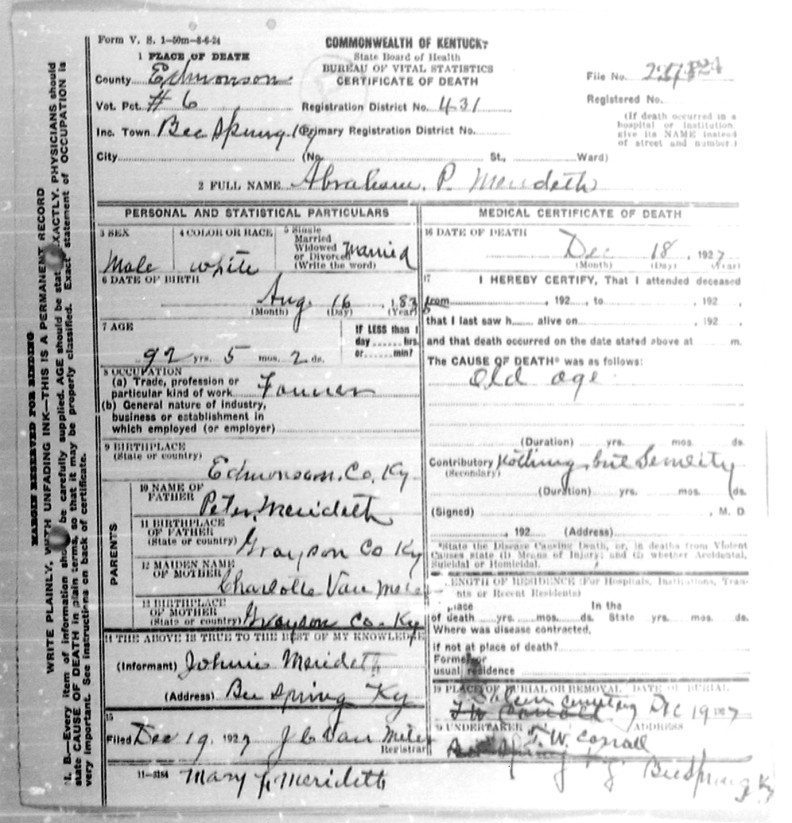 Form V. S. 1-50m-8-6-24
COMMONWEALTH OF KENTUCKY
State Board of Health
BUREAU OF VITAL STATISTICS
CERTIFICATE OF DEATH
1 PLACE OF DEATH
County Edmonson
File No.
Vot. Pct. #6
Registration District No. 431
Registered No.
Inc. Town Bee Spring Ky
Primary Registration District No.
(If death occurred in a
hospital or institution
give its NAME instead
of street and number.)
City (No. St., Ward)
2 FULL NAME Abraham. P. Merideth
PERSONAL AND STATISTICAL PARTICULARS
3 SEX
Male
4 COLOR OR RACE
white
5 Single
Married
Widowed
or Divorced
(Write the word)
Married
6 DATE OF BIRTH
Aug. 16, 183
(Month) (Day) (Year)
7 AGE
92 yrs. 5 mos. 2 ds.
IF LESS than 1
day hrs.
or min?
8 OCCUPATION
(a) Trade, profession or
particular kind of work Farmer
(b) General nature of industry,
business or establishment in
which employed (or employer)
9 BIRTHPLACE
(State or country)
Edmonson. Co. Ky
PARENTS
10 NAME OF
FATHER
Peter Merideth
11 BIRTHPLACE
OF FATHER
(State or country) Grayson Co Ky
12 MAIDEN NAME
OF MOTHER
Charlotte Van Mete
13 BIRTHPLACE
OF MOTHER
(State or country) Grayson Co. Ky
14 THE ABOVE IS TRUE TO THE BEST OF MY KNOWLEDGE
(Informant) Johnie Merideth
(Address) Bee Spring Ky
15
Filed Dec 19, 1927 J C Van Meter
Registrar
11-3184 Mary J. Merideth
MEDICAL CERTIFICATE OF DEATH
16 DATE OF DEATH
Dec 18, 1927
(Month) (Day) (Year)
17 I HEREBY CERTIFY, That I attended deceased
from , 192 , to , 192 ,
that I last saw h alive on , 192 ,
and that death occurred on the date stated above at m.
The CAUSE OF DEATH* was as follows:
Old age
(Duration) yrs. mos. ds.
Contributory Nothing but Senility
(Secondary)
(Duration) yrs. mos. ds.
(Signed) , M. D.
, 192 (Address)
*State the Disease Causing Death, or, in deaths from Violent
Causes state (1) Means of Injury; and (2) whether Accidental,
Suicidal or Homicidal.
LENGTH OF RESIDENCE (For Hospitals, Institutions, Tran-
nts or Recent Residents)
place In the
of death yrs. mos. ds. State yrs. mos. ds.
Where was disease contracted,
If not at place of death?
Former or
usual residence
19 PLACE OF BURIAL OR REMOVAL DATE OF BURIAL
cemetery Dec 19 1927
UNDERTAKER ADDRESS
T. W. Carroll
Bee Spring Ky
MARGIN RESERVED FOR BINDING
WRITE PLAINLY, WITH UNFADING INK—THIS IS A PERMANENT RECORD
N. B.—Every item of information should be carefully supplied. AGE should be stated EXACTLY. PHYSICIANS should
state CAUSE OF DEATH in plain terms, so that it may be properly classified. Exact statement of OCCUPATION is
very important. See instructions on back of certificate.